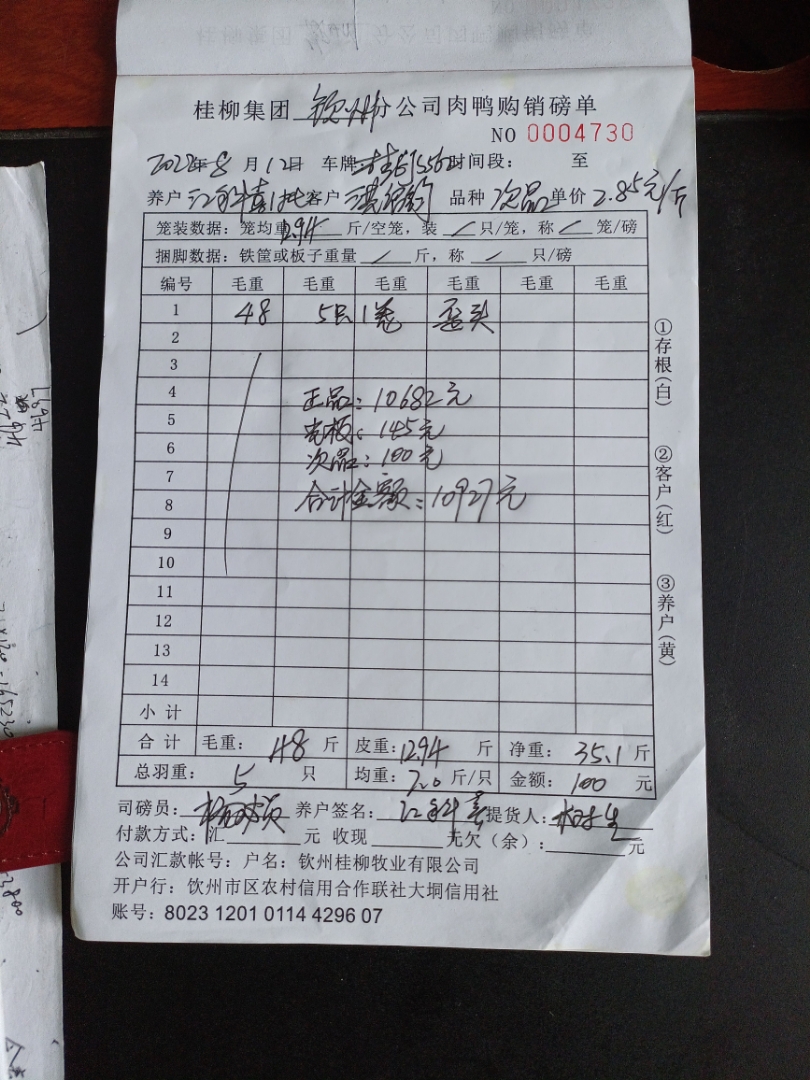 桂柳集团 钦州分公司肉鸭购销磅单
NO 0004730
2022年8月12日 车牌: 时间段: 至
养户 客户 品种 次品 单价 2.85元/斤
笼装数据:笼均重12.94斤/空笼,装/只/笼,称/笼/磅
捆脚数据:铁筐或板子重量/斤,称/只/磅
编号 毛重 毛重 毛重 毛重 毛重 毛重
1 48 5只 1笼 歪头
2
3
4 正品:10682元
5 145元
6 次品:100元
7
8 合计金额:10927元
9
10
11
12
13
14
小计
合计 毛重:48斤 皮重:12.94斤 净重:35.1斤
总羽重:5只 均重:7.0斤/只 金额:100元
司磅员: 养户签名: 提货人:
付款方式:汇 元 收现 元欠(余): 元
公司汇款帐号:户名:钦州桂柳牧业有限公司
开户行:钦州市区农村信用合作联社大垌信用社
账号:8023 1201 0114 4296 07
①存根(白) ②客户(红) ③养户(黄)